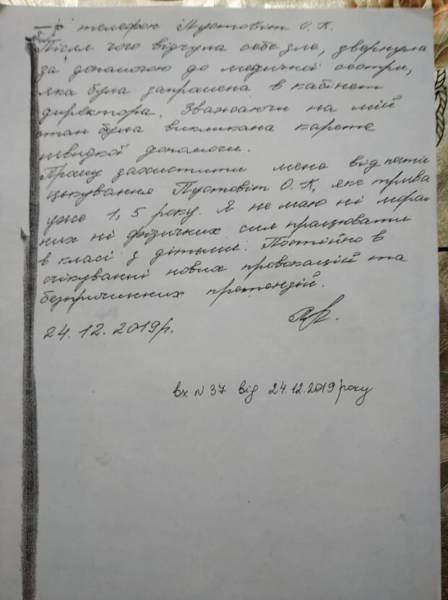 телефон Пустовіт О.К.
Після чого відчула себе зле, звернула
за допомогою до медичної сестри,
яка була запрошена в кабінет
директора. Зважаючи на мій
стан була викликана карета
швидкої допомоги.
Прошу захистити мене від
цькування Пустовіт О.К, яке трива
уже 1,5 року. Я не маю ні мора
них ні фізичних сил працювати
в класі з дітьми. Постійно в
очікуванні нових провокацій та
безпричинних претензій.
24.12.2019р.
вх N 37 від 24.12.2019 року